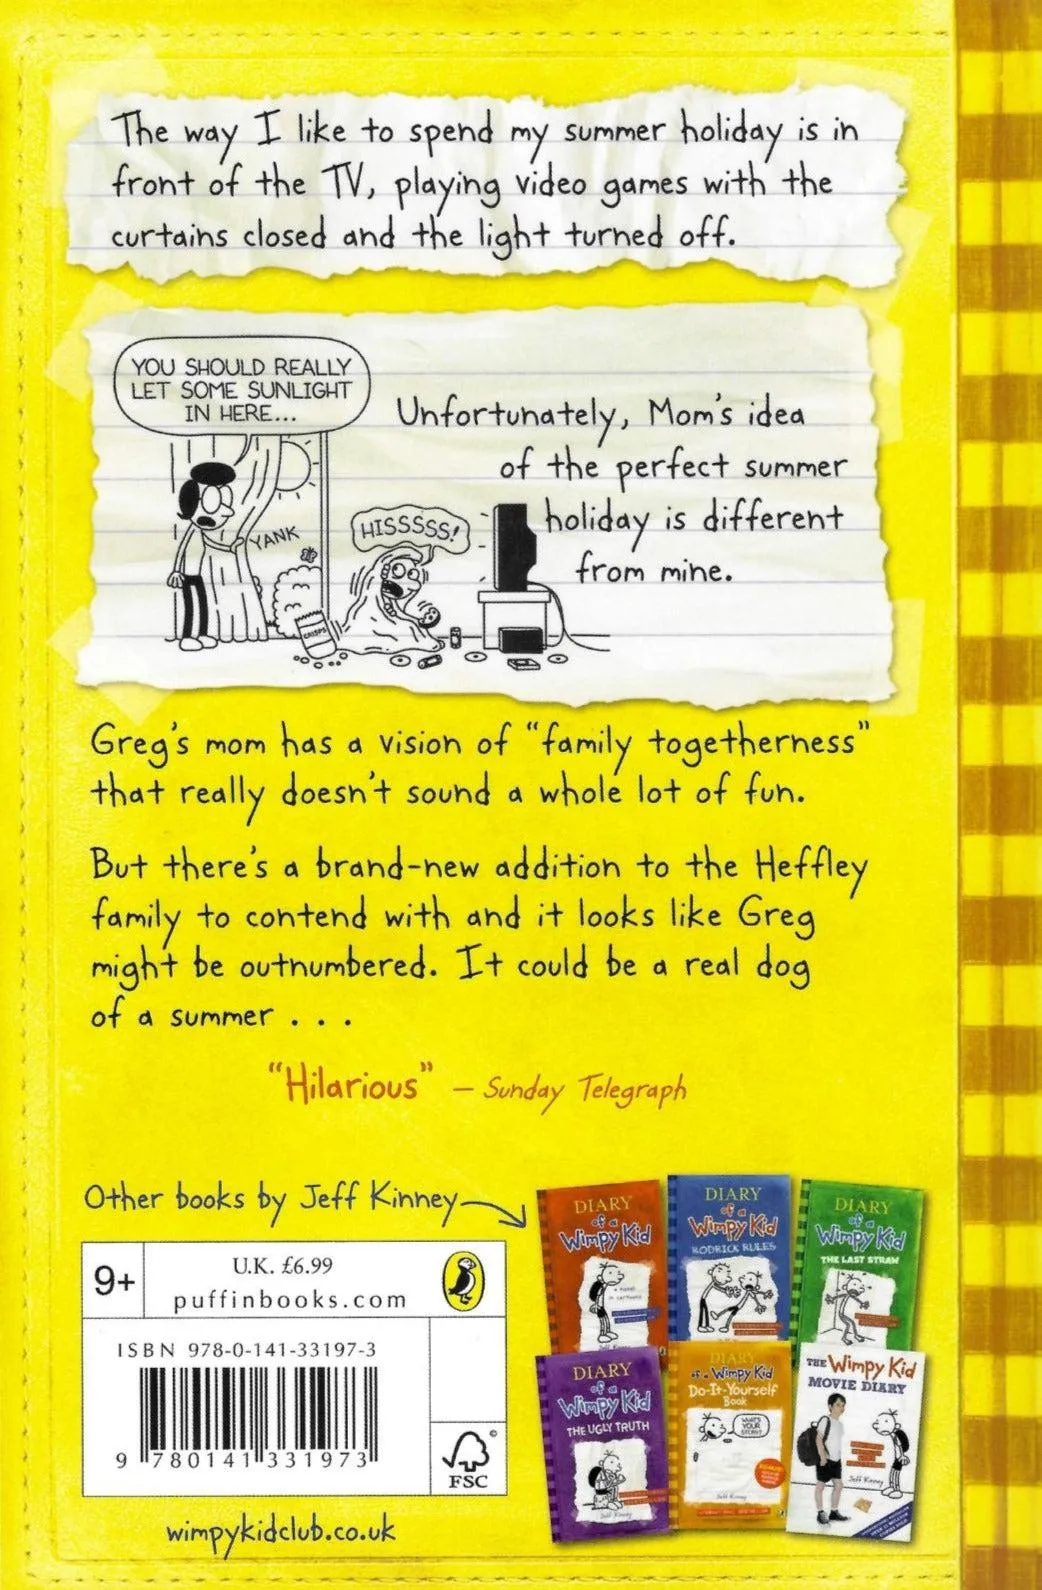 The way I like to spend my summer holiday is in
front of the TV, playing video games with the
curtains closed and the light turned off.
YOU SHOULD REALLY
LET SOME SUNLIGHT
IN HERE...
YANK
HISSSSS!
CRISPS
Unfortunately, Mom's idea
of the perfect summer
holiday is different
from mine.
Greg's mom has a vision of "family togetherness"
that really doesn't sound a whole lot of fun.
But there's a brand-new addition to the Heffley
family to contend with and it looks like Greg
might be outnumbered. It could be a real dog
of a summer . . .
"Hilarious" – Sunday Telegraph
Other books by Jeff Kinney
9+
U.K. £6.99
puffinbooks.com
ISBN 978-0-141-33197-3
9 780141 331973
©
FSC
wimpykidclub.co.uk
DIARY
of a
Wimpy Kid
a novel
in cartoons
DIARY
of a
Wimpy Kid
RODRICK RULES
DIARY
of a
Wimpy Kid
THE LAST STRAW
DIARY
of a
Wimpy Kid
THE UGLY TRUTH
Jeff Kinney
DIARY
of a Wimpy Kid
Do-It-Yourself
Book
WHAT'S
YOUR
STORY?
Jeff Kinney
THE Wimpy Kid
MOVIE DIARY
Jeff Kinney